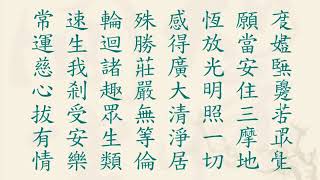 邊苦眾生
願當安住三摩地
恆放光明照一切
感得廣大清淨居
殊勝莊嚴無等倫
輪迴諸趣眾生類
速生我剎受安樂
常運慈心拔有情